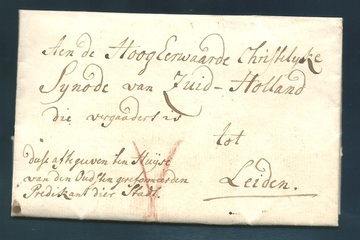 Aen de HoogEerwaarde Christelyke
Synode van Zuid-Holland
die vergaadert is
tot
Leiden.
dese aftegeeven ten Huyse
van den Oudsten gereformeerden
Predikant dier Stadt.